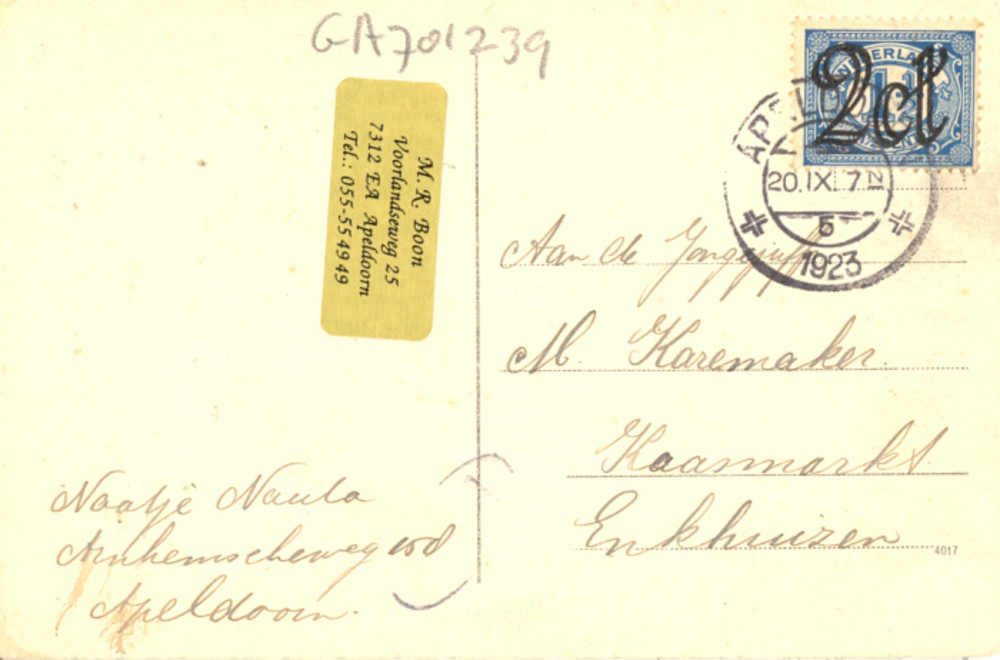 GA701239
M. R. Boon
Voorlandseweg 25
7312 EA Apeldoorn
Tel.: 055-55 49 49
NEDERLAND
2ct
20.IX. 7 N
5
1923
Aan de Jongejuff
M. Karemaker.
Kaasmarkt.
Enkhuizen
4017
Naatje Nauta
Arnhemscheweg
Apeldoorn.